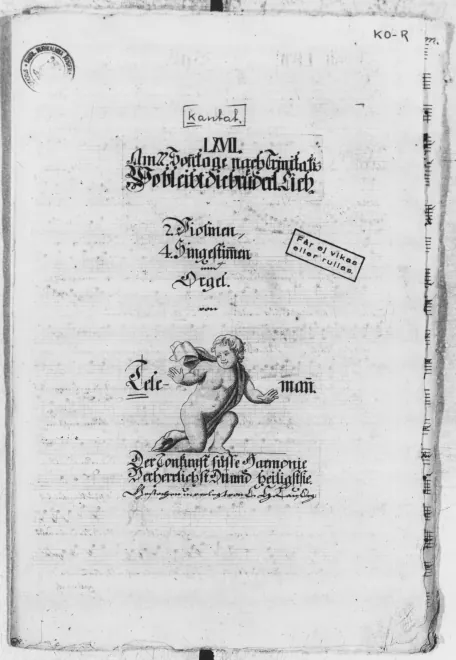 KO-R
Kantat.
LXVII.
Am 22. Sontage nach Trinitatis
Wo bleibt die brüderl. Lieb
2. Violinen,
4. Singestimen
und
Orgel.
von
Får ej vikas
eller rullas.
Tele- mañ.
Der Tonkunst süsse Harmonie
Verherrlichst Du und heiligst sie.